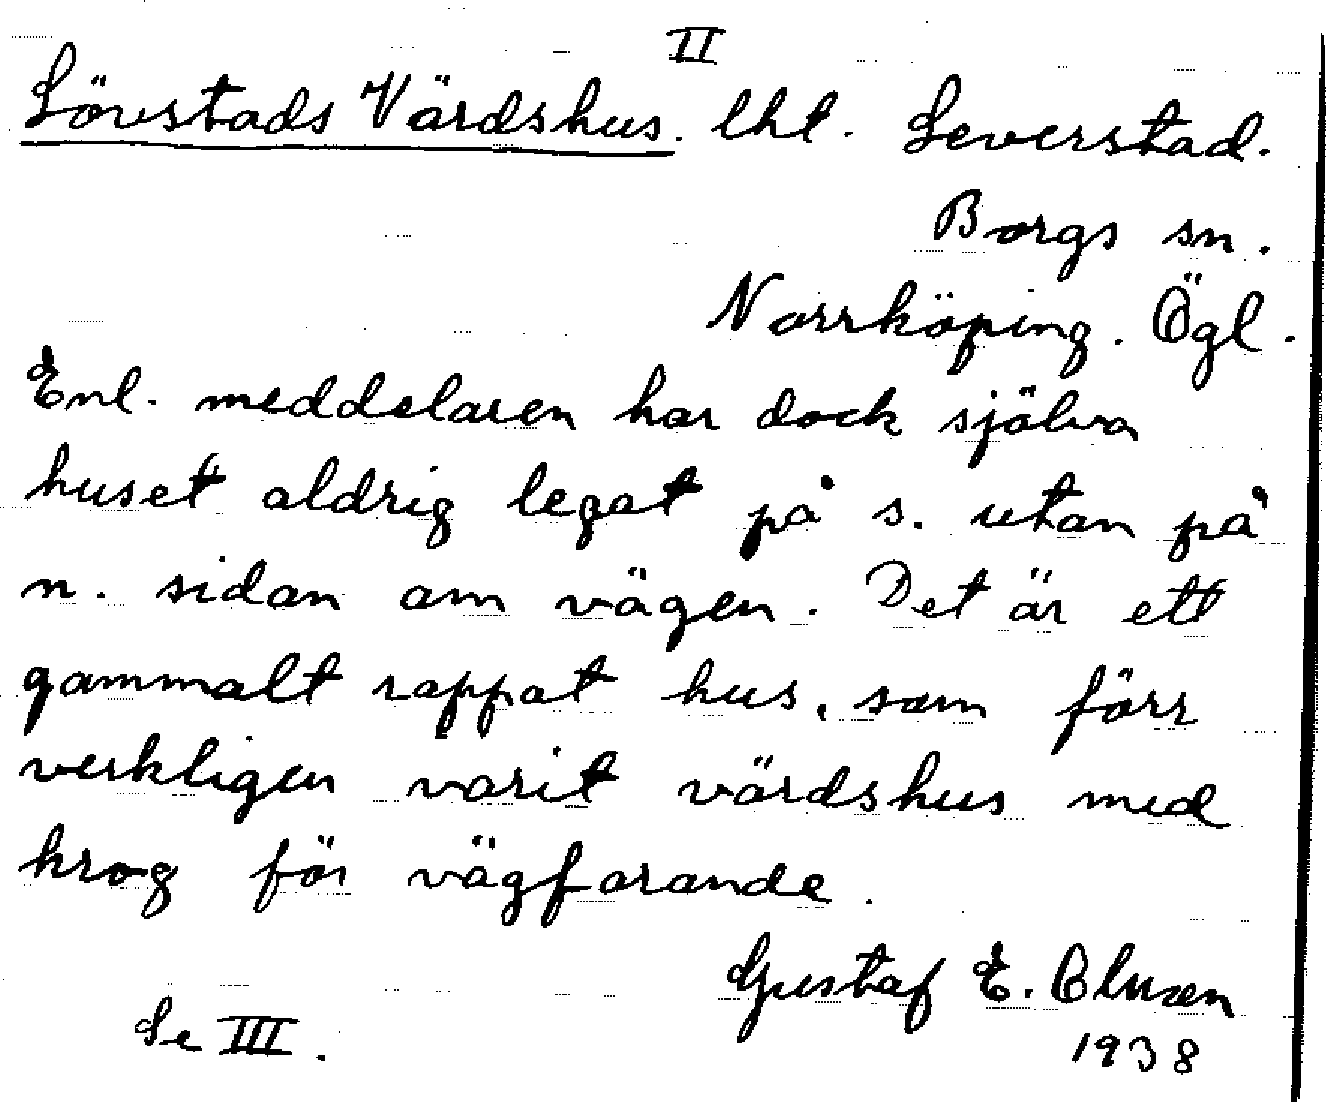 II
Lövstads Värdshus. lht. Leverstad.
Borgs sn.
Norrköping. Ögl.
Enl. meddelaren har dock själva
huset aldrig legat på s. utan på
n. sidan om vägen. Det är ett
gammalt rappat hus, som förr
verkligen varit värdshus med
krog för vägfarande.
Gustaf E. Cluzen
1938
Se III.